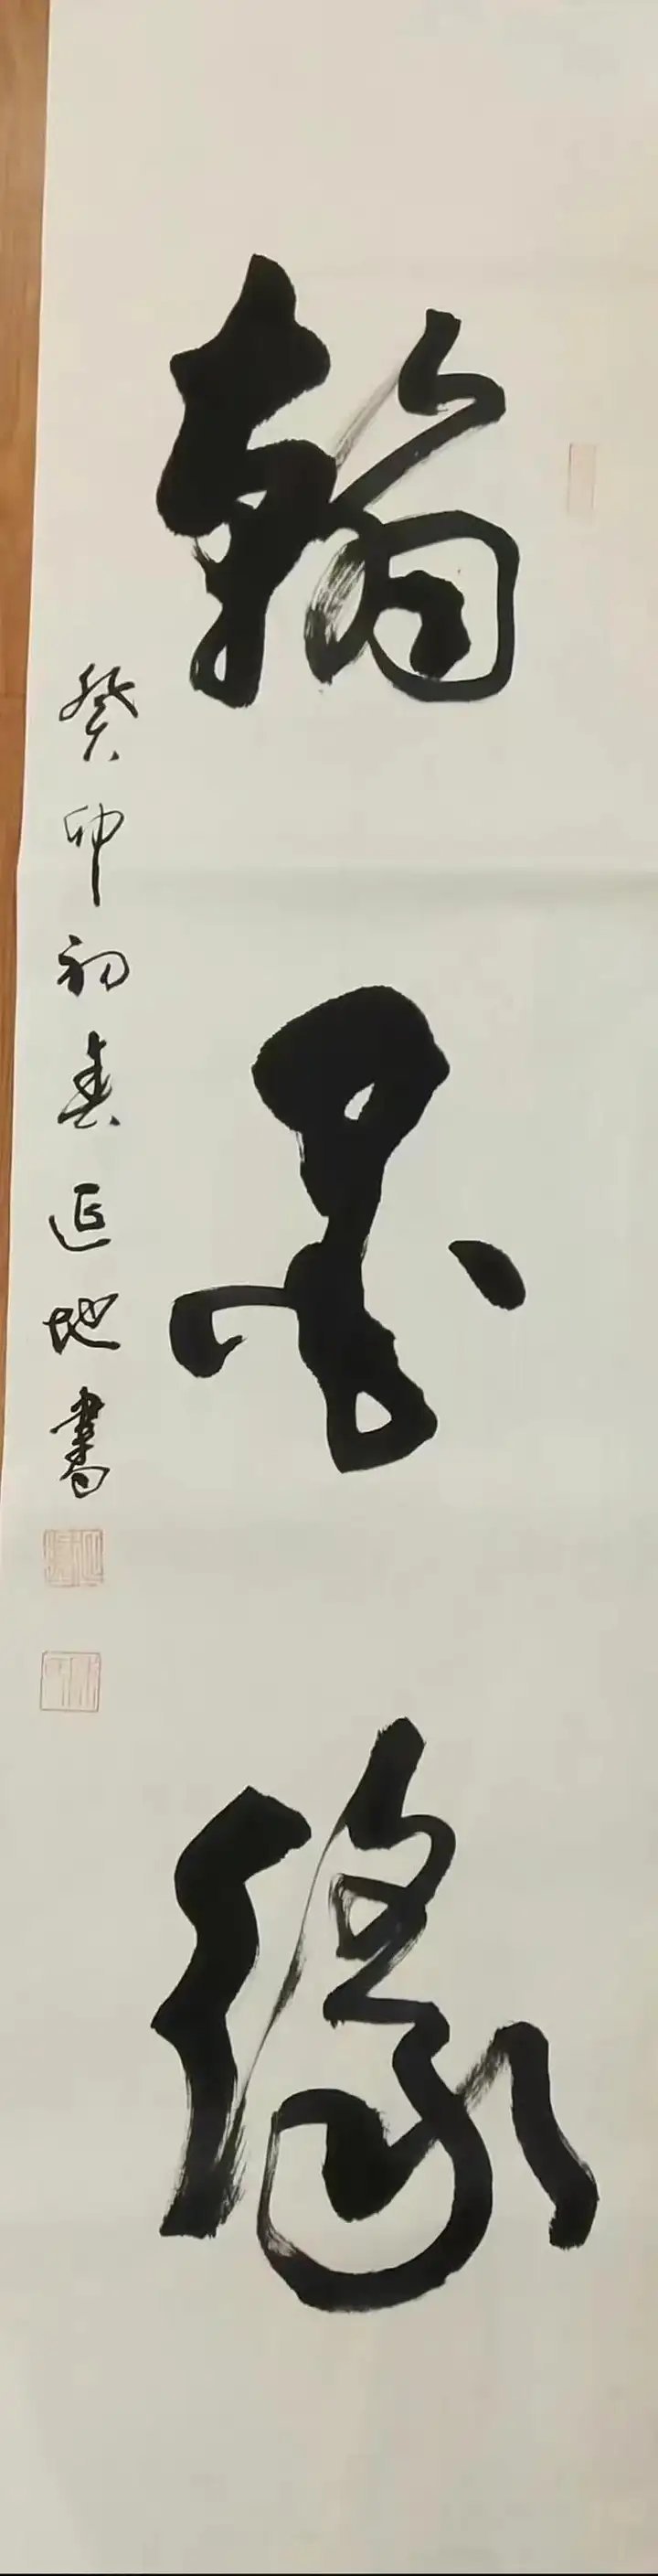 翰墨缘
癸卯初春延地書